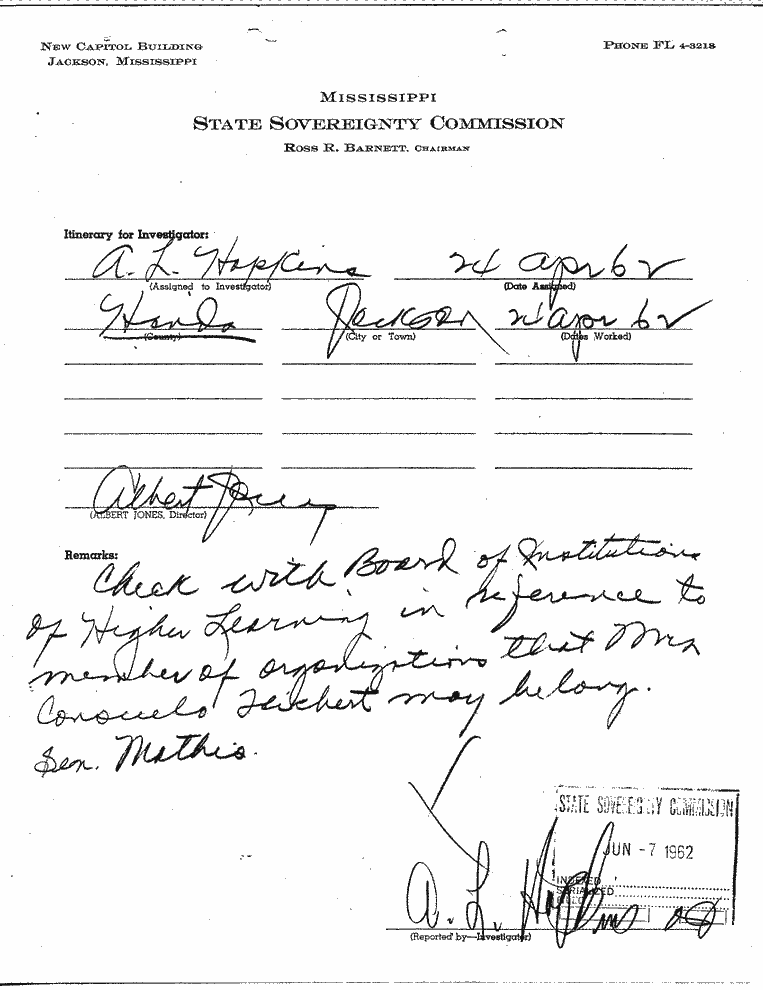 NEW CAPITOL BUILDING
JACKSON, MISSISSIPPI
PHONE FL 4-3218
MISSISSIPPI
STATE SOVEREIGNTY COMMISSION
ROSS R. BARNETT, CHAIRMAN
Itinerary for Investigator:
A. L. Hopkins 24 Apr 62
(Assigned to Investigator) (Date Assigned)
Hinds Jackson 24 Apr 62
(County) (City or Town) (Dates Worked)
Albert Jones
(ALBERT JONES, Director)
Remarks:
Check with Board of Institutions
of Higher Learning in reference to
member of organizations that Mrs
Consuelo may belong.
Sen. Mathis.
STATE SOVEREIGNTY COMMISSION
JUN -7 1962
INDEXED
SERIALIZED
A. L. Hopkins
(Reported by—Investigator)